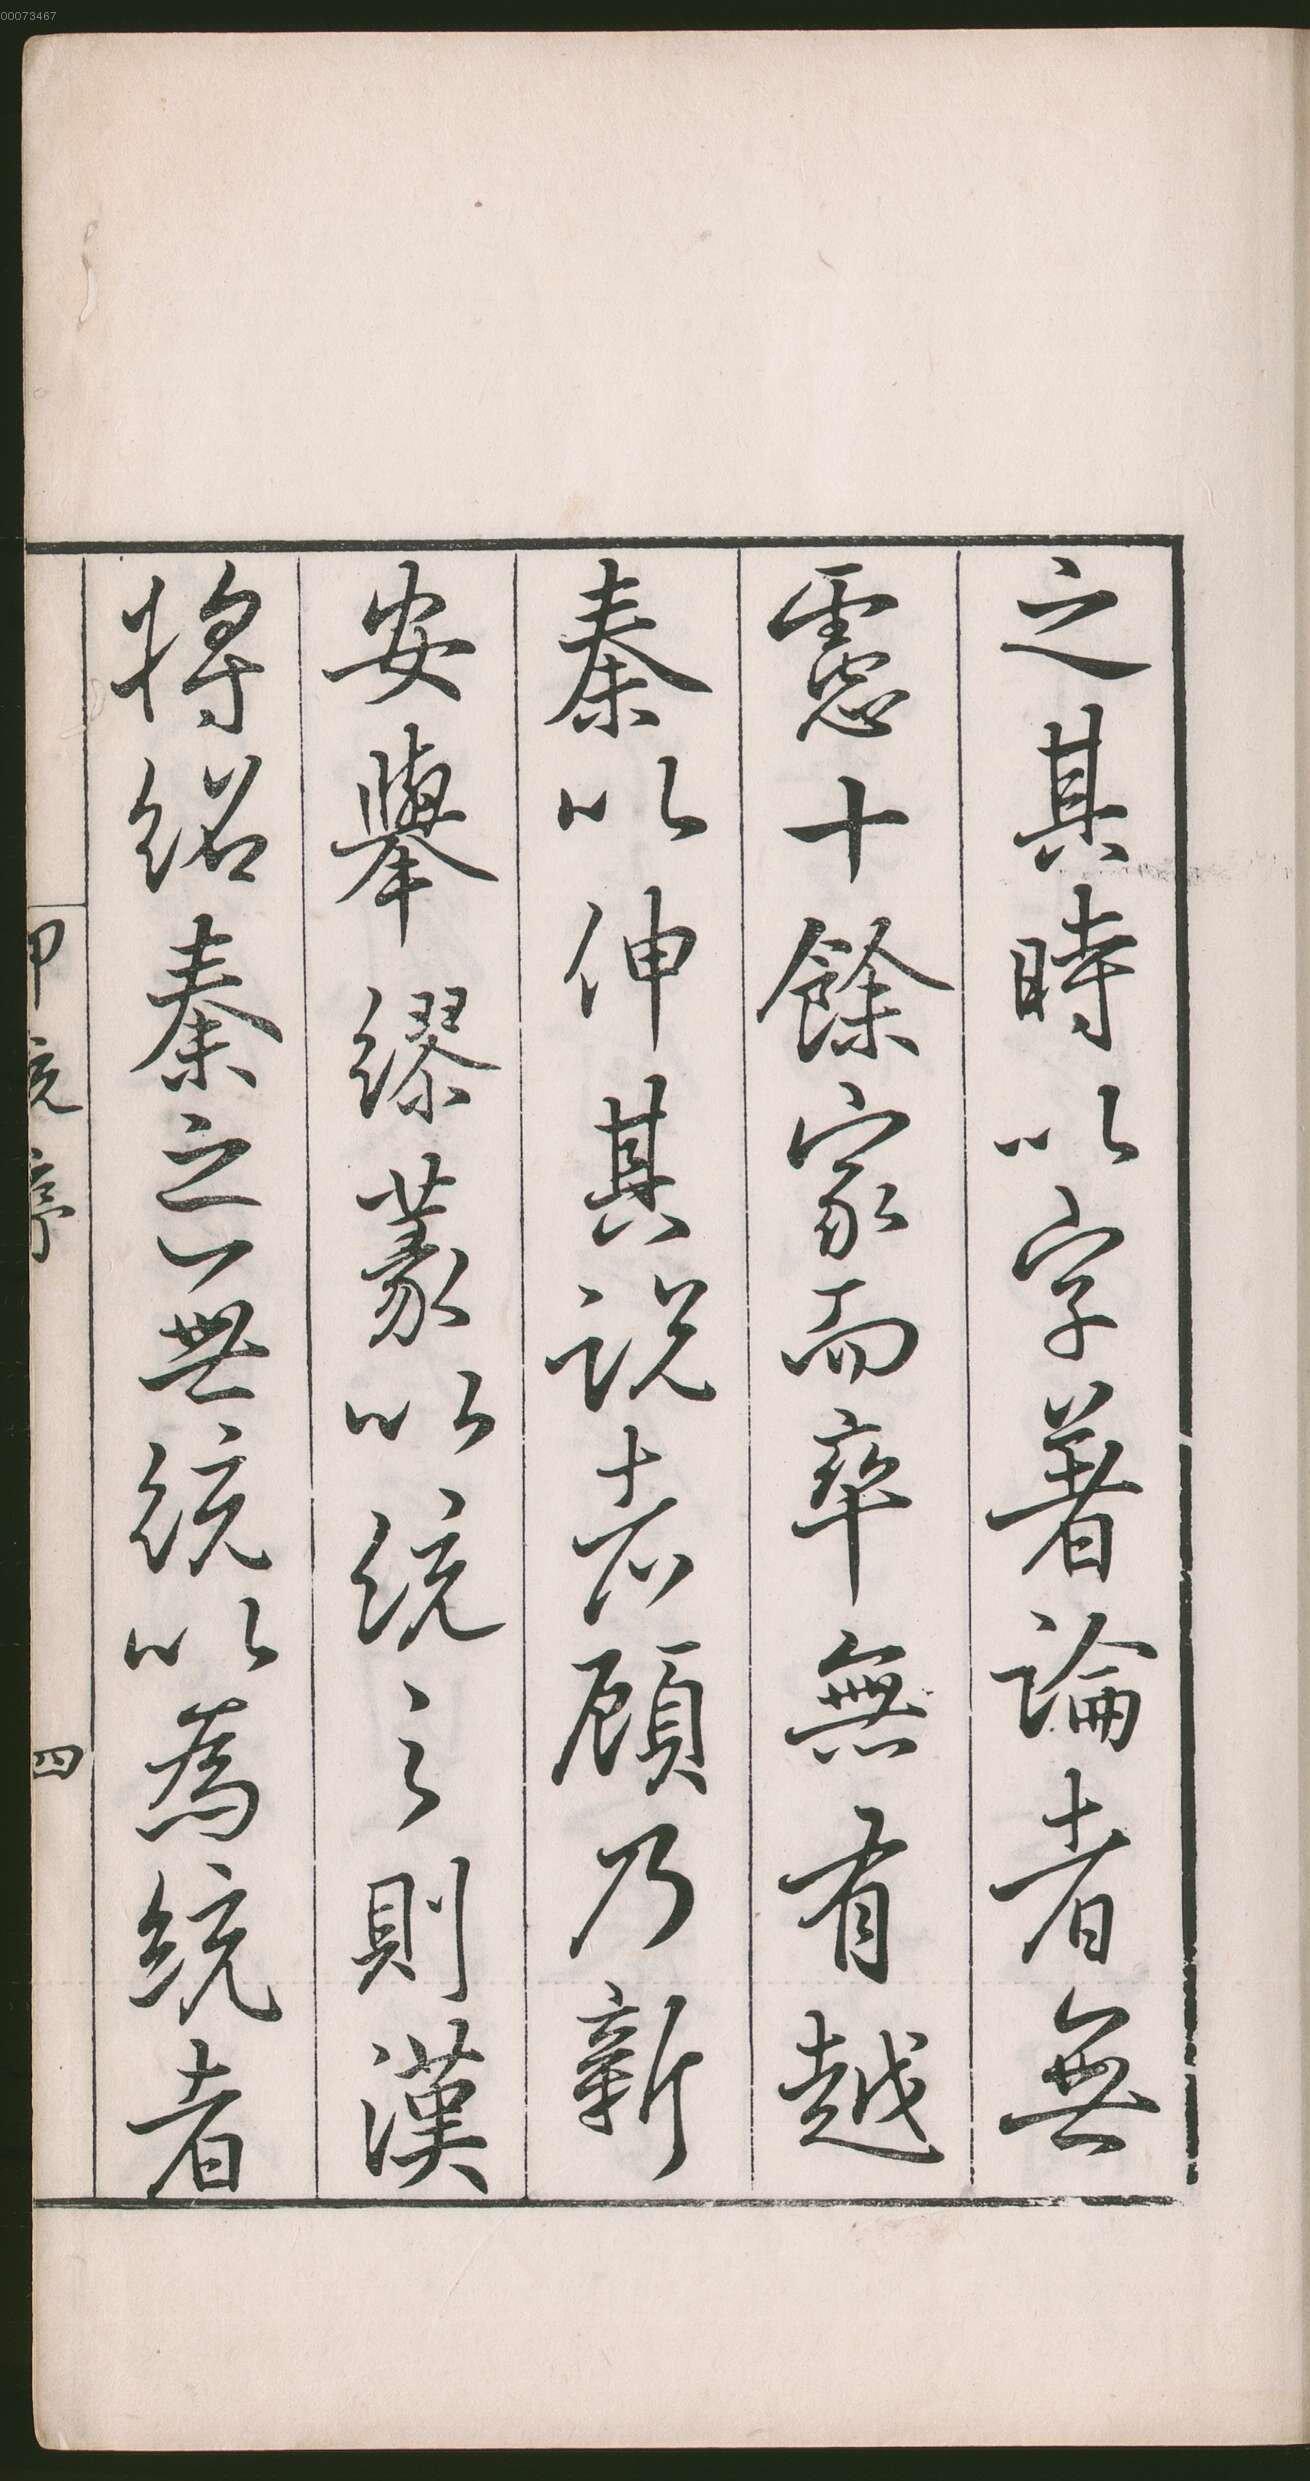 00073467
之其時以字著論者無
慮十餘家而率無有越
秦以伸其説者顧乃新
安擧繆篆以統之則漢
將紹秦之無統以為統者
印統序
四